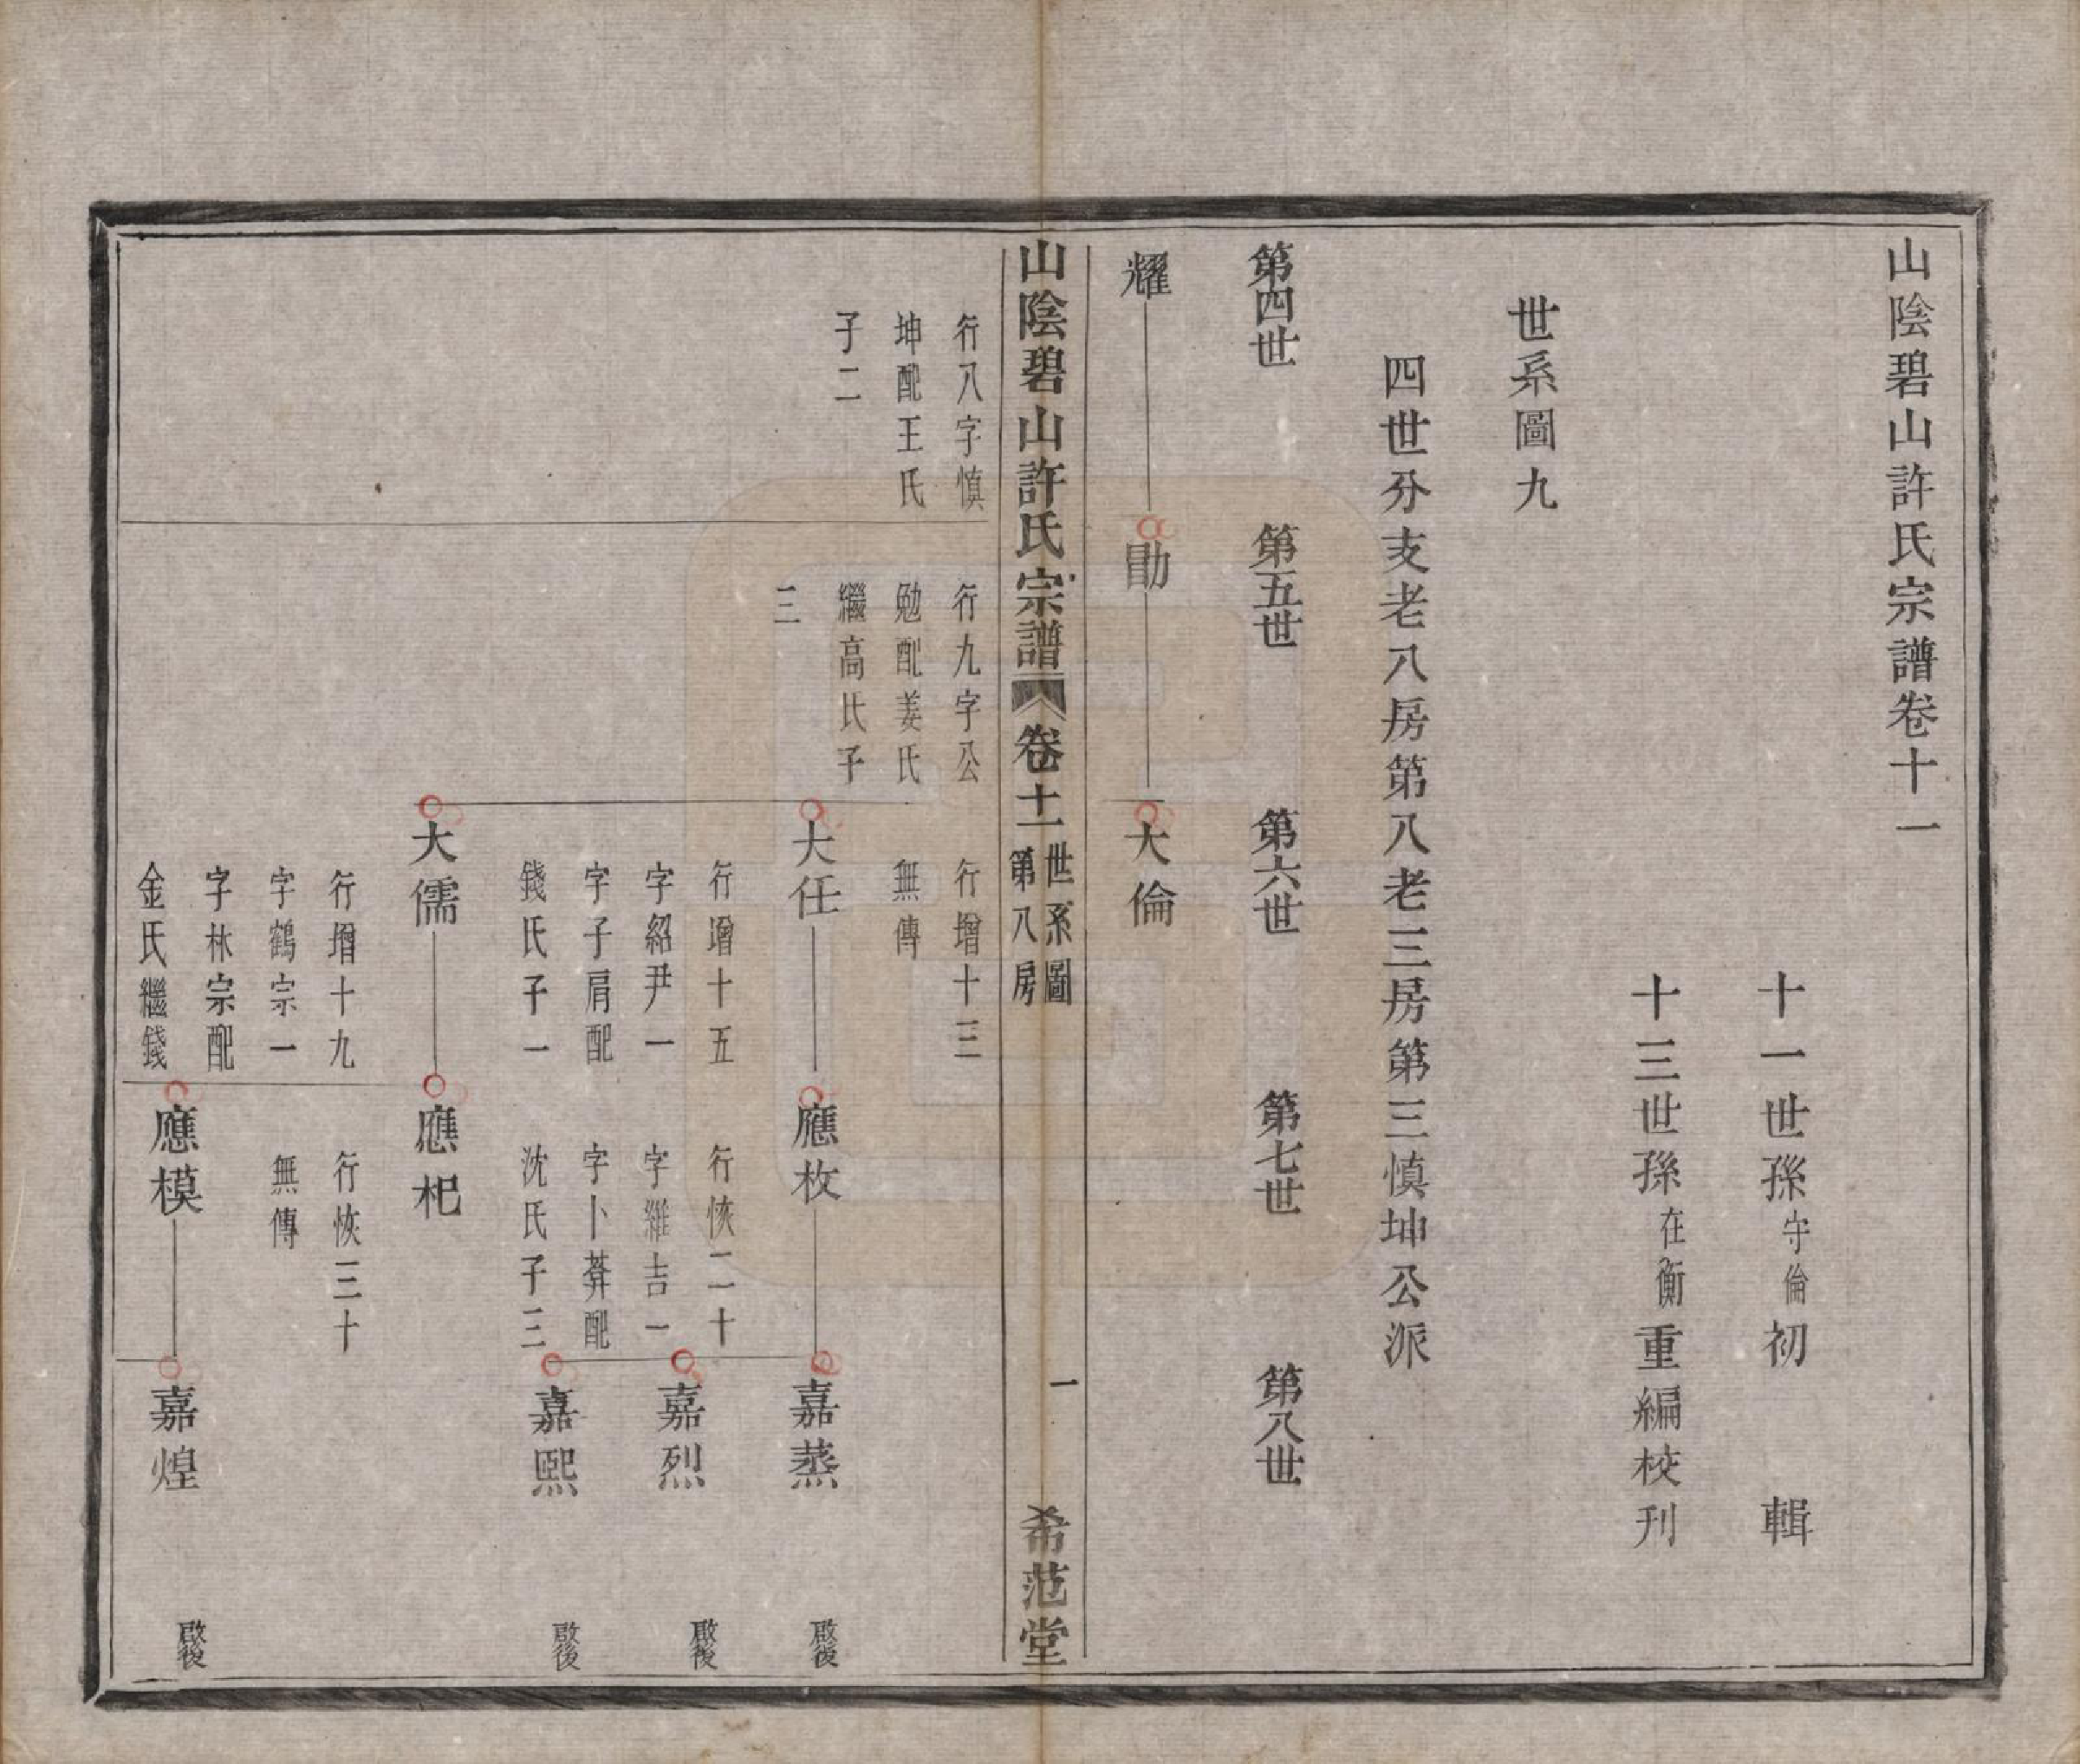 山陰碧山許氏宗譜卷十一
十一世孫守倫初輯
十三世孫在衡重編校刊
世系圖九
四世分支老八房第八老三房第三慎坤公派
第四世
第五世
第六世
第七世
第八世
耀
勖
大倫
山陰碧山許氏宗譜
卷十一
世系圖
第八房
一
希范堂
行八字慎
坤配王氏
子二
行九字公
勉配姜氏
繼高氏子
三
行增十三
無傳
大任
應枚
嘉蒸
啟後
行增十五
字紹尹一
字子肩配
錢氏子一
行恢二十
字維吉一
字卜萛配
沈氏子三
嘉烈
啟後
嘉熙
啟後
大儒
應杞
行增十九
字鶴宗一
字林宗配
金氏繼錢
行恢三十
無傳
應模
嘉煌
啟後